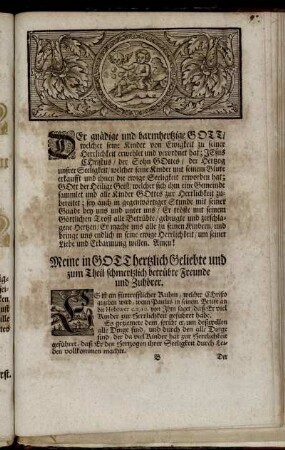 DEr gnädige und barmhertzige GOTT/
welcher seine Kinder von Ewigkeit zu seiner
Herrlichkeit erwehlet und verordnet hat; JEsus
Christus / der Sohn GOttes / der Hertzog
unserer Seeligkeit / welcher seine Kinder mit seinem Blute
erkaufft und ihnen die ewige Seeligkeit erworben hat;
GOtt der Heilige Geist, welcher sich ihm eine Gemeinde
sammlet und alle Kinder GOttes zur Herrlichkeit zu-
bereitet; sey auch in gegenwärtiger Stunde mit seiner
Gnade bey uns und unter uns! Er tröste mit seinem
Göttlichen Trost alle Betrübte / gebeugte und zerschla-
gene Hertzen, Er mache uns alle zu seinen Kindern, und
bringe uns endlich in seine ewige Herrlichkeit, um seiner
Liebe und Erbarmung willen. Amen!
Meine in GOTT hertzlich Geliebte und
zum Theil schmertzlich betrübte Freunde
und Zuhörer.
ist ein fürtrefflicher Ruhm, welcher Christo
gegeben wird, wenn Paulus in seinem Briefe an
die Hebräer von Ihm saget, daß Er viel
Kinder zur Herrlichkeit geführet habe.
Es geziemete dem, spricht er, um deßwillen
alle Dinge sind, und durch den alle Dinge
sind, der da viel Kinder hat zur Herrlichkeit
geführet, daß Er den Hertzogen ihrer Seeligkeit durch Lei-
den vollkommen machte.
B Der